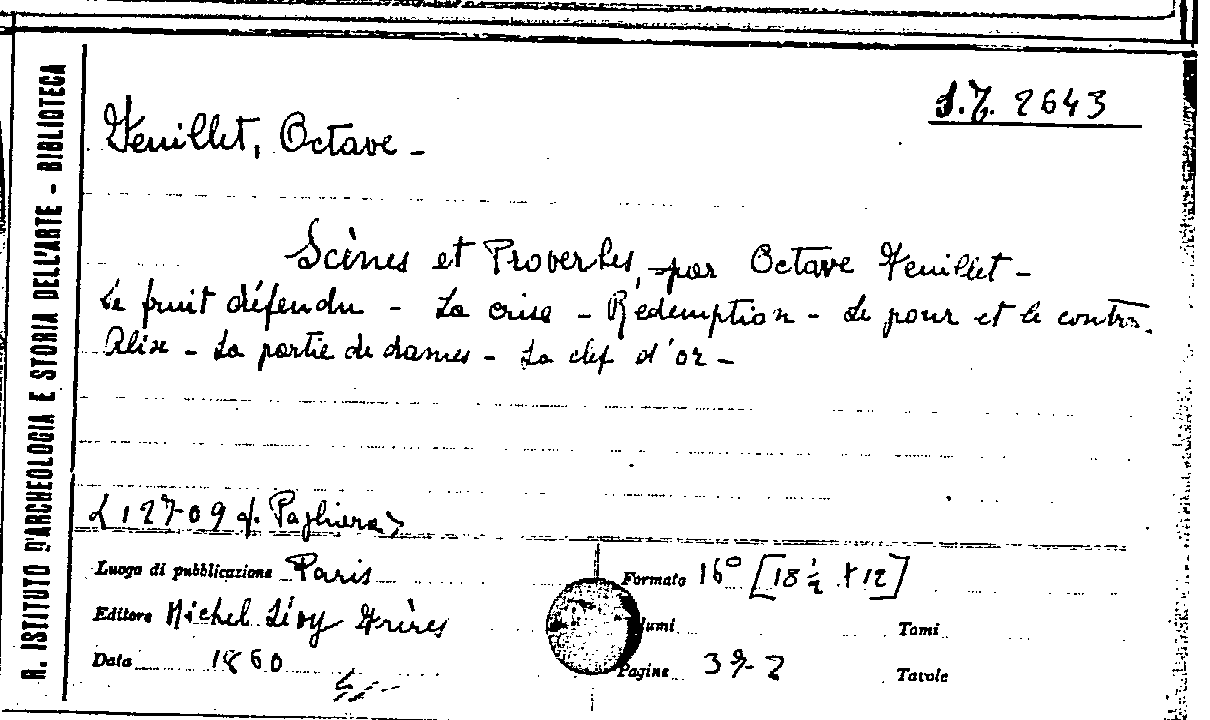 R. ISTITUTO D'ARCHEOLOGIA E STORIA DELL'ARTE - BIBLIOTECA
S.T. 2643
Feuillet, Octave -
Scènes et Proverbes, par Octave Feuillet -
Le fruit défendu - La crise - Rédemption - Le pour et le contre.
Alix - La partie de dames - La clef d'or -
Luogo di pubblicazione Paris
Formato 16° [18 ½ x 12]
Editore Michel Lévy Frères
Volumi
Tomi
Data 1860
Pagine 392
Tavole